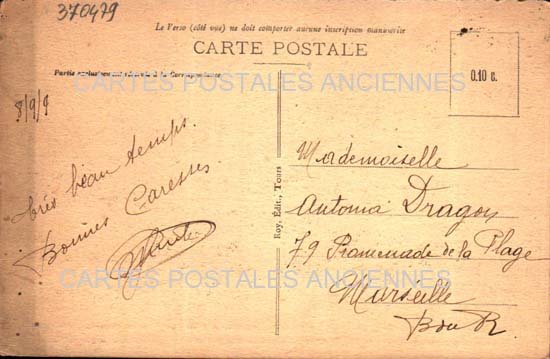 370479
Le Verso (côté vue) ne doit comporter aucune inscription manuscrite
CARTE POSTALE
Partie exclusivement réservée à la Correspondance
0.10 c.
CARTES POSTALES ANCIENNES
8/9/9
très beau temps.
Bonnes Caresses
Roy, Édit., Tours
Mademoiselle
Antonia Dragon
79 Promenade de la Plage
Marseille
B du R
CARTES POSTALES ANCIENNES